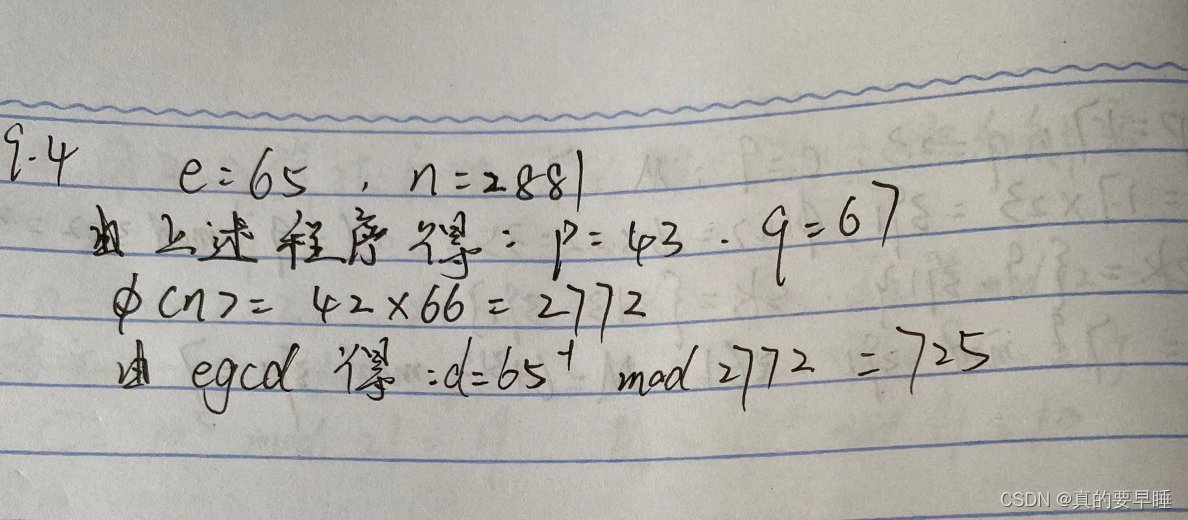 9.4 e=65, n=2881
由上述程序得: p=43. q=67
φ(n)= 42×66=2772
由 egcd 得:d=65⁻¹ mod 2772 =725
CSDN @真的要早睡